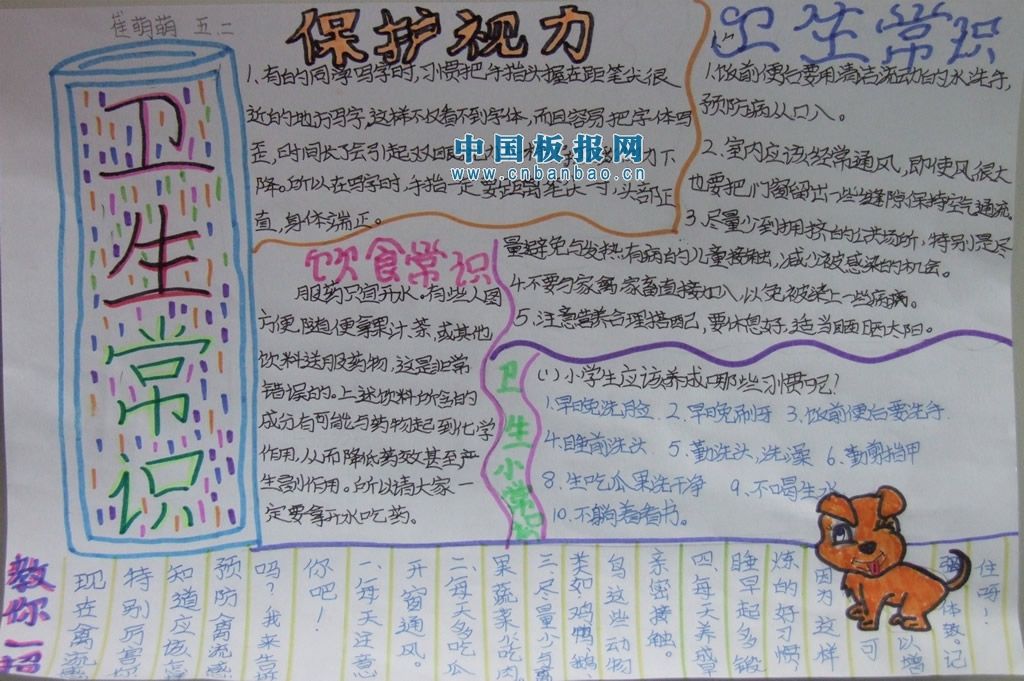 崔萌萌 五.二
卫生常识
保护视力
1.有的同学写字时,习惯把手指头握在距笔尖很
近的地方写字,这样不仅看不到字体,而且容易把字体写
歪,时间长了会引起双眼
下
降。所以在写字时,手指一定要距离笔尖一寸,头部正
直,身体端正。
中国板报网
www.cnbanbao.cn
卫生常识
1.饭前便后要用清洁流动的水洗手,
预防病从口入。
2.室内应该经常通风,即使风很大
也要把门窗留出一些缝隙保持空气通流。
3.尽量少到拥挤的公共场所,特别是尽
量避免与发热有病的儿童接触,减少被感染的机会。
4.不要与家禽家畜直接加入,以免被染上一些疾病。
5.注意营养合理搭配,要休息好,适当晒晒太阳。
饮食常识
服药只宜开水。有些人图
方便,随便拿果汁、茶,或其他
饮料送服药物,这是非常
错误的。上述饮料所含的
成分有可能与药物起到化学
作用,从而降低药效甚至产
生副作用。所以请大家一
定要拿开水吃药。
卫生小常识
(1)小学生应该养成哪些习惯呢?
1.早晚洗脸 2.早晚刷牙 3.饭前便后要洗手
4.睡前洗头 5.勤洗头,洗澡 6.勤剪指甲
8.生吃瓜果洗干净 9.不喝生水
10.不躺着看书。
教你一招
现在禽流
特别厉害你
知道应该怎
预防禽流感
吗?我来告诉
你吧!
一.每天注意
开窗通风。
二.每天多吃瓜
果蔬菜少吃肉。
三.尽量少与
类如鸡鸭鹅
鸟这些动物
亲密接触。
四.每天养成早
睡早起多锻
炼的好习惯
因为这样
可
以增
体质。记
住呀!